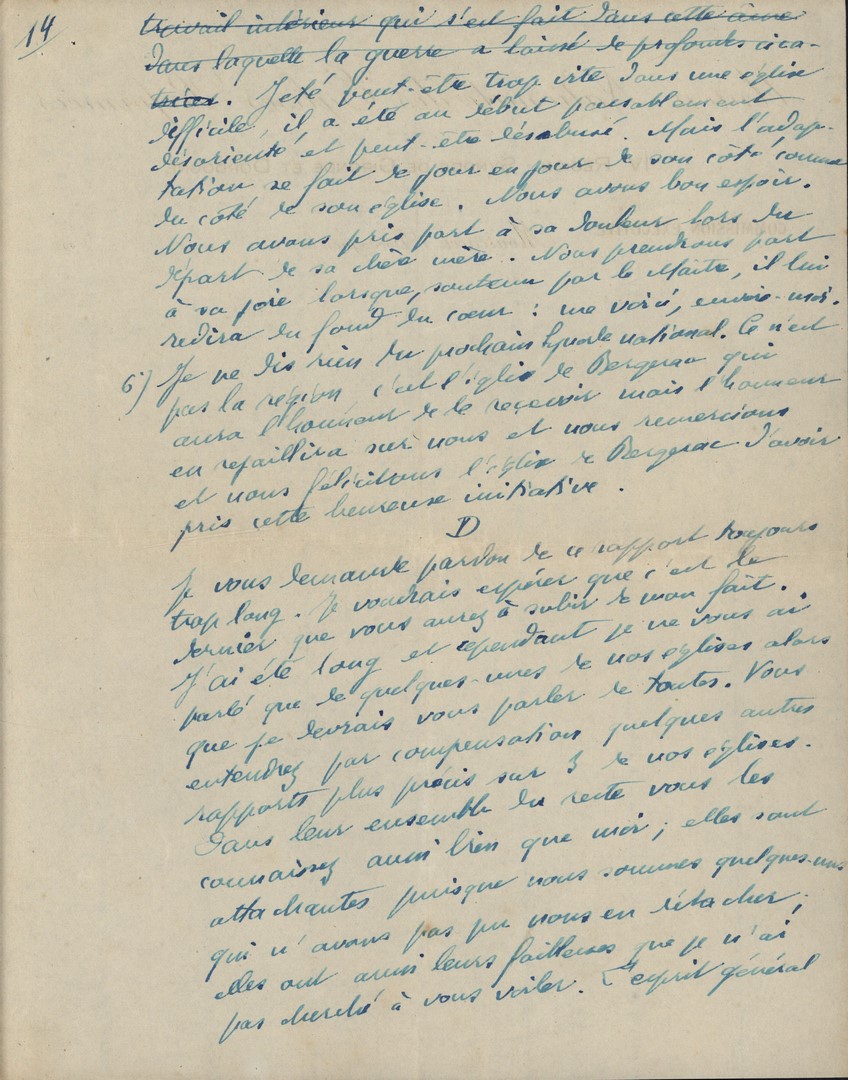 14
travail intérieur qui s'est fait dans cette âme
dans laquelle la guerre a laissé de profondes cica-
trices. Jeté peut-être trop vite dans une église
difficile, il a été au début passablement
désorienté et peut-être désabusé. Mais l'adap-
tation se fait de jour en jour de son côté comme
du côté de son église. Nous avons bon espoir.
Nous avons pris part à sa douleur lors du
départ de sa chère mère. Nous prendrons part
à sa joie lorsque, soutenu par le Maître, il lui
redira du fond du coeur : me voici, envoie-moi.
6°) Je ne dis rien du prochain synode national. Ce n'est
pas la région c'est l'église de Bergerac qui
aura l'honneur de le recevoir mais l'honneur
en rejaillira sur nous et nous remercions
et nous félicitons l'église de Bergerac d'avoir
pris cette heureuse initiative.
D
Je vous demande pardon de ce rapport toujours
trop long. Je voudrais espérer que c'est le
dernier que vous aurez à subir de mon fait.
J'ai été long et cependant je ne vous ai
parlé que de quelques-unes de nos églises alors
que je devrais vous parler de toutes. Vous
entendrez par compensation quelques autres
rapports plus précis sur 3 de nos églises.
Dans leur ensemble du reste vous les
connaissez aussi bien que moi ; elles sont
attachantes puisque nous sommes quelques-uns
qui n'avons pas pu nous en détacher ;
elles ont aussi leurs faiblesses que je n'ai
pas cherché à vous voiler. L'esprit général